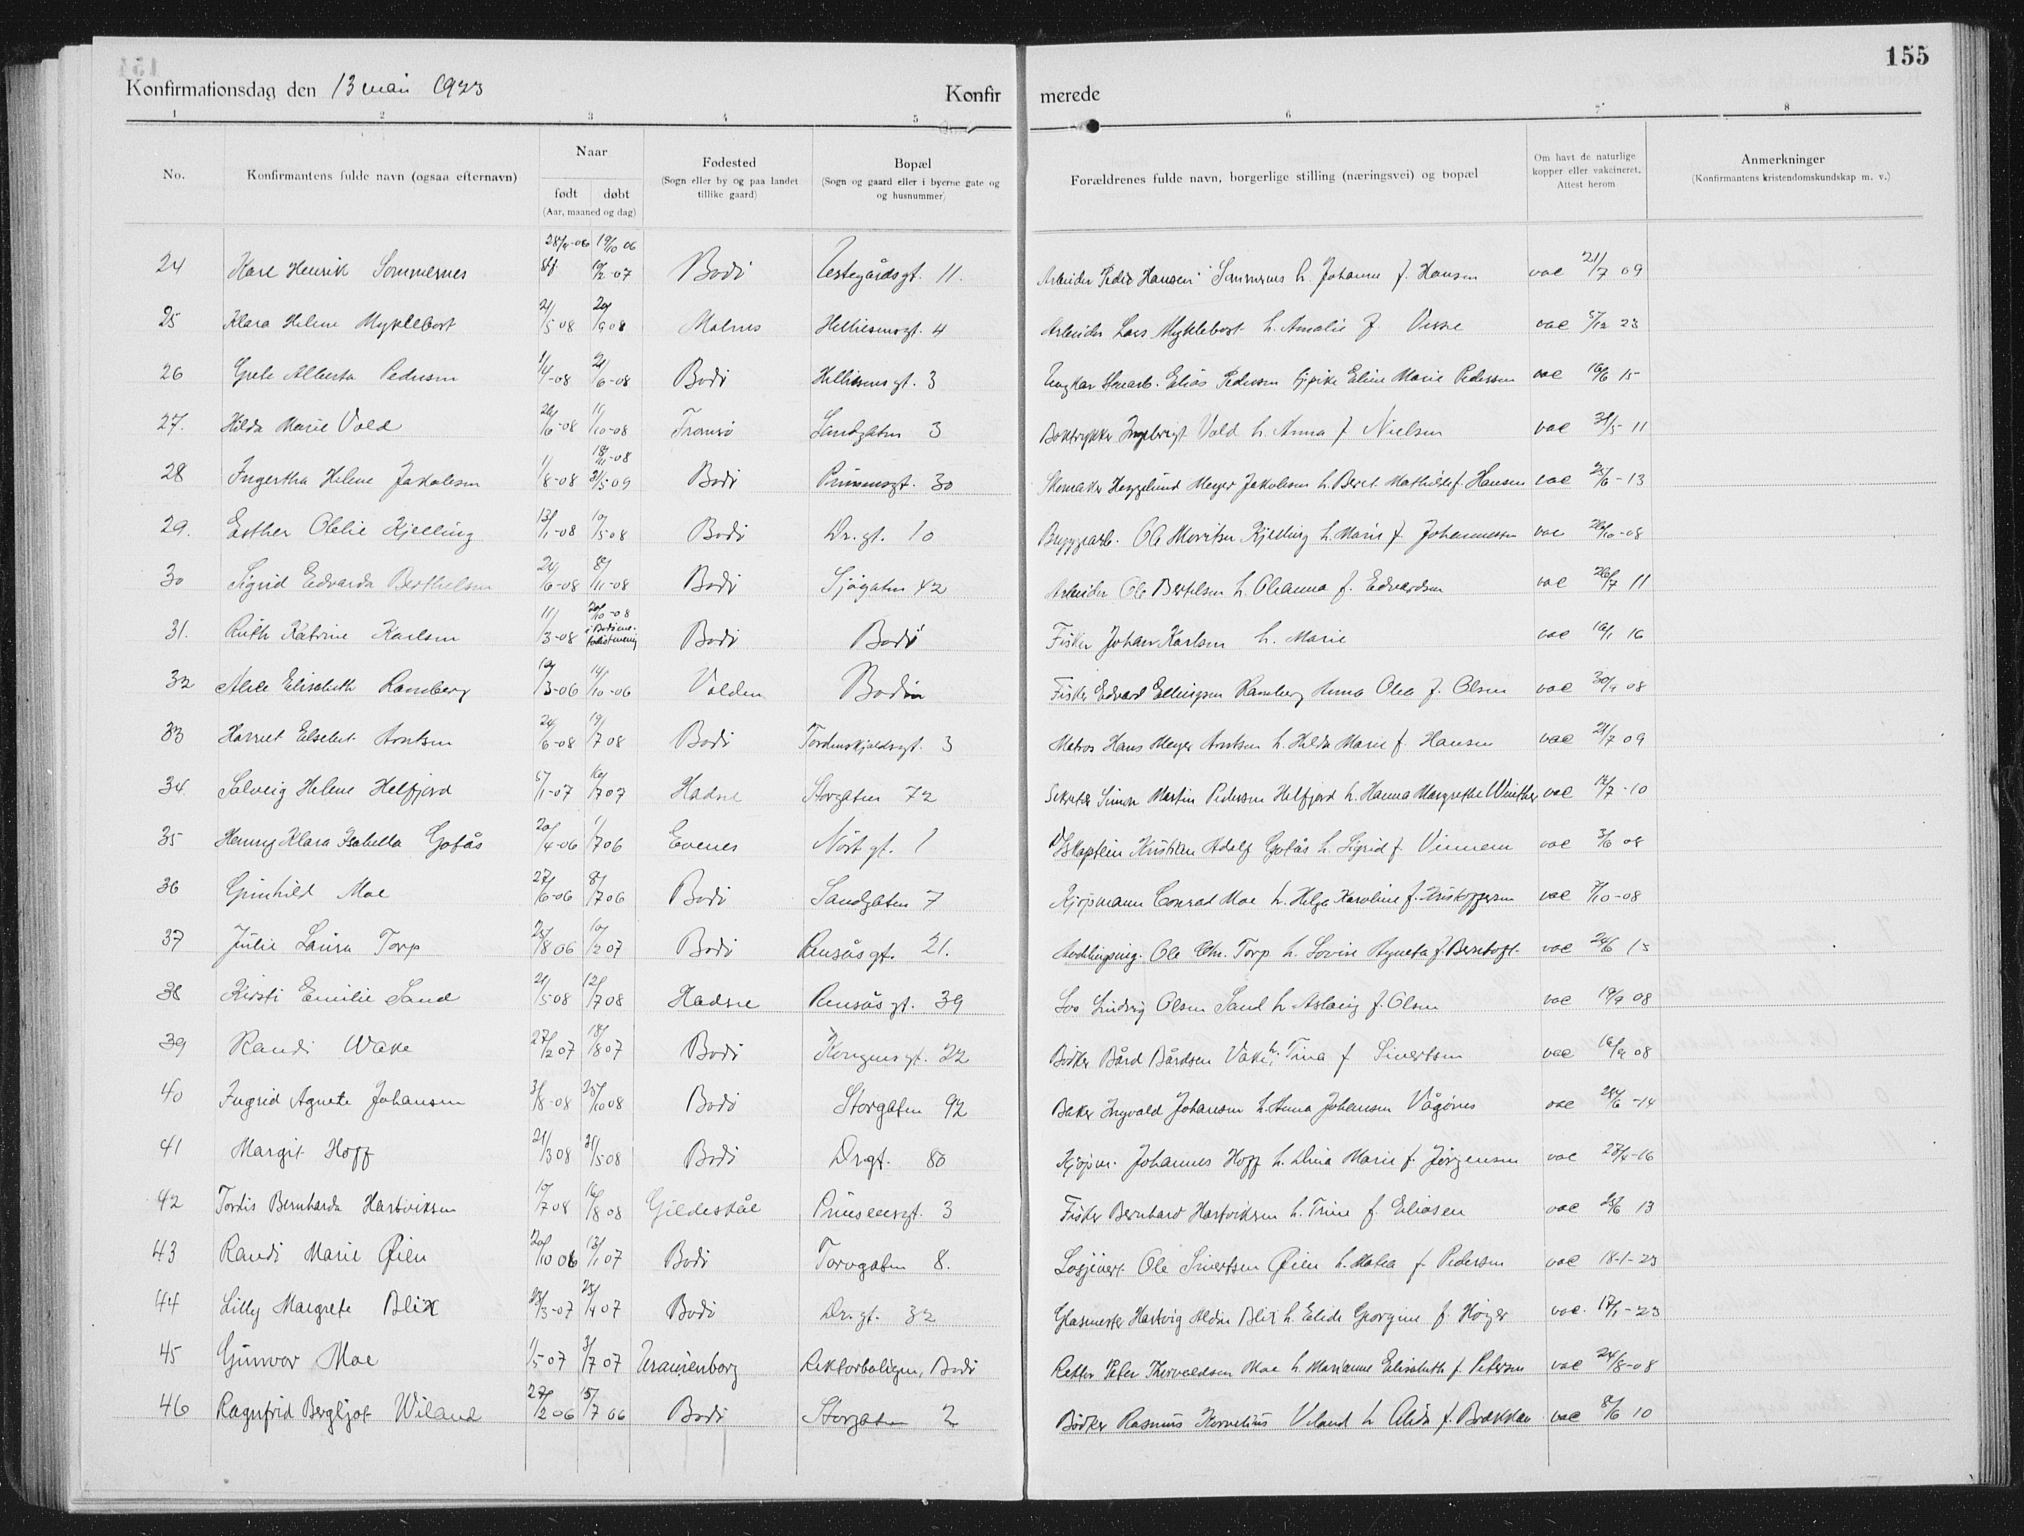 155
Konfirmationsdag den 13 mai 1923 Konfir merede
1 2 3 4 5 6 7 8
No. Konfirmantens fulde navn (ogsaa efternavn) Naar Fødested Bopæl Forældrenes fulde navn, borgerlige stilling (næringsvei) og bopæl Om havt de naturlige kopper eller vakcineret. Attest herom Anmerkninger
født døbt (Sogn eller by og paa landet tillike gaard) (Sogn og gaard eller i byerne gate og og husnummer) (Konfirmantens kristendomskundskap m. v.)
(Aar, maaned og dag)
24 Kare Henrik Sommernes Bodö 11. Arbeider Peder Hansen Sommernes h. Johanne f. Hansen vac 21/7 09
25 Klara Helene Myklebost 21/5 08 20/9 08 Melnes 4 Arbeider Lars Myklebost h. Amalie f. vac 5/12 23
26 Grete Alberta Pedersen 1/4-08 21/6-08 Bodö 3 Elias Pedersen pike Eline Marie Pedersen vac 16/6 15
27. Hilda Marie Vold 26/6-08 11/10-08 Tromsö Sandgaten 3 Boktrykker Ingebrigt Vold h. Anna f Nielsen vac 31/5 11
28 Ingertha Helene Jakobsen 1/8-08 18/11-08 31/5 09 Bodö Prinsensgt. 30 Skomaker Heggelund Meyer Jakobsen h. Beret Mathilde f. Hansen vac 25/6-13
29. Esther Olelie Kjelling 13/1-08 10/5 08 Bodö Dr. gt. 10 Bryggearb. Ole Moritsen Kjelling h. Marie f. Johannessen vac 26/10-08
30 Sigrid Edvarda Berthelsen 24/6-08 8/11-08 Bodö Sjögaten 42 Arbeider Ole Bertelsen h. Oleanna f. Edvardsen vac 26/7 11
31. Ruth Katrine Karlsen 11/3-08 20/10-08 Bodö Bodö Fisker Johan Karlsen h. Marie vac 16/1 16
32 Alice Elisabeth Ramberg 10/3-06 14/10-06 Valden Bodin Fisker Edvard Ellingsen Ramberg Anna Olea f. Olsen vac 30/9 08
33 Harriet Elsebet Arntsen 24/6-08 19/7 08 Bodö Tordenskjoldsgt. 3 Matros Hans Meyer Arntsen h. Hilda Marie f. Hansen vac 21/7 09
34 Solveig Helene Helfjord 5/1-07 16/7 07 Hadsel Storgaten 72 Sekretær Simon Martin Pedersen Helfjord h. Hanna Margrethe Winther vac 12/7-10
35 Henny Klara Isabella Gotås 20/4-06 1/7 06 Evenes Nörtgt. 1 D/Skaptein Kristian Adolf Gotås h. Sigrid f. Vinnem vac 3/6 08
36 Gunhild Moe 27/6-06 8/7 06 Bodö Sandgaten 7 Kjöpmann Conrad Moe h. Helga Karoline f. Kristoffersen vac 7/10-08
37 Julie Laura Torp 25/8 06 10/2 07 Bodö Rensåsgt. 21. Avdlingsing. Ole Chr. Torp h. Lovise Agneta f. Berntoft. vac 24/6 15
38 Kirsti Emilie Sand 21/5 08 12/7 08 Hadsel Rensåsgt. 39 Los Ludvig Olsen Sand h. Aslaug f. Olsen vac 19/9 08
39 Randi Wake 27/2 07 18/8 07 Bodö Kongensgt. 22 Bødker Bård Bårdsen Vake h. Tina f Sivertsen vac 16/9 08
40 Ingrid Agnete Johansen 3/8-08 25/10 08 Bodö Storgaten 92 Baker Ingvald Johansen h. Anna Johansen Vågönes vac 24/6-14
41 Margit Hoff 21/3 08 31/5 08 Bodö Drgt. 80 Kjöpm. Johannes Hoff h. Dina Marie f. Jörgensen vac 27/4-16
42 Tordis Bernharda Hartviksen 10/7 08 16/8 08 Gildeskål Prinsensgt. 3 Fisker Bernhard Hartviksen h. Trine f. Eliasen vac 25/6 13
43 Randi Marie Øien 20/10 06 13/1 07 Bodö Torvgaten 8. Losjivert Ole Sivertsen Øien h. Matea f. Pedersen vac 18-1-23
44 Lilly Margrete Blix 23/3-07 25/4 07 Bodö Dr. gt. 32 Glasmester Hartvig Aldar Blix h. Elide Georgine f. Høyer vac. 17/1-23
45 Gunvor Moe 1/5 07 3/7 07 Uranienborg Rektorboligen, Bodö Rektor Peter Thorvaldsen Moe h. Marianne Elisabeth f. Petersen vac 24/8-08
46 Ragnfrid Bergljot Wiland 27/2 06 15/7 06 Bodö Storgaten 2 Bødker Rasmus Kornelius Viland h Alida f. vac 8/6 10